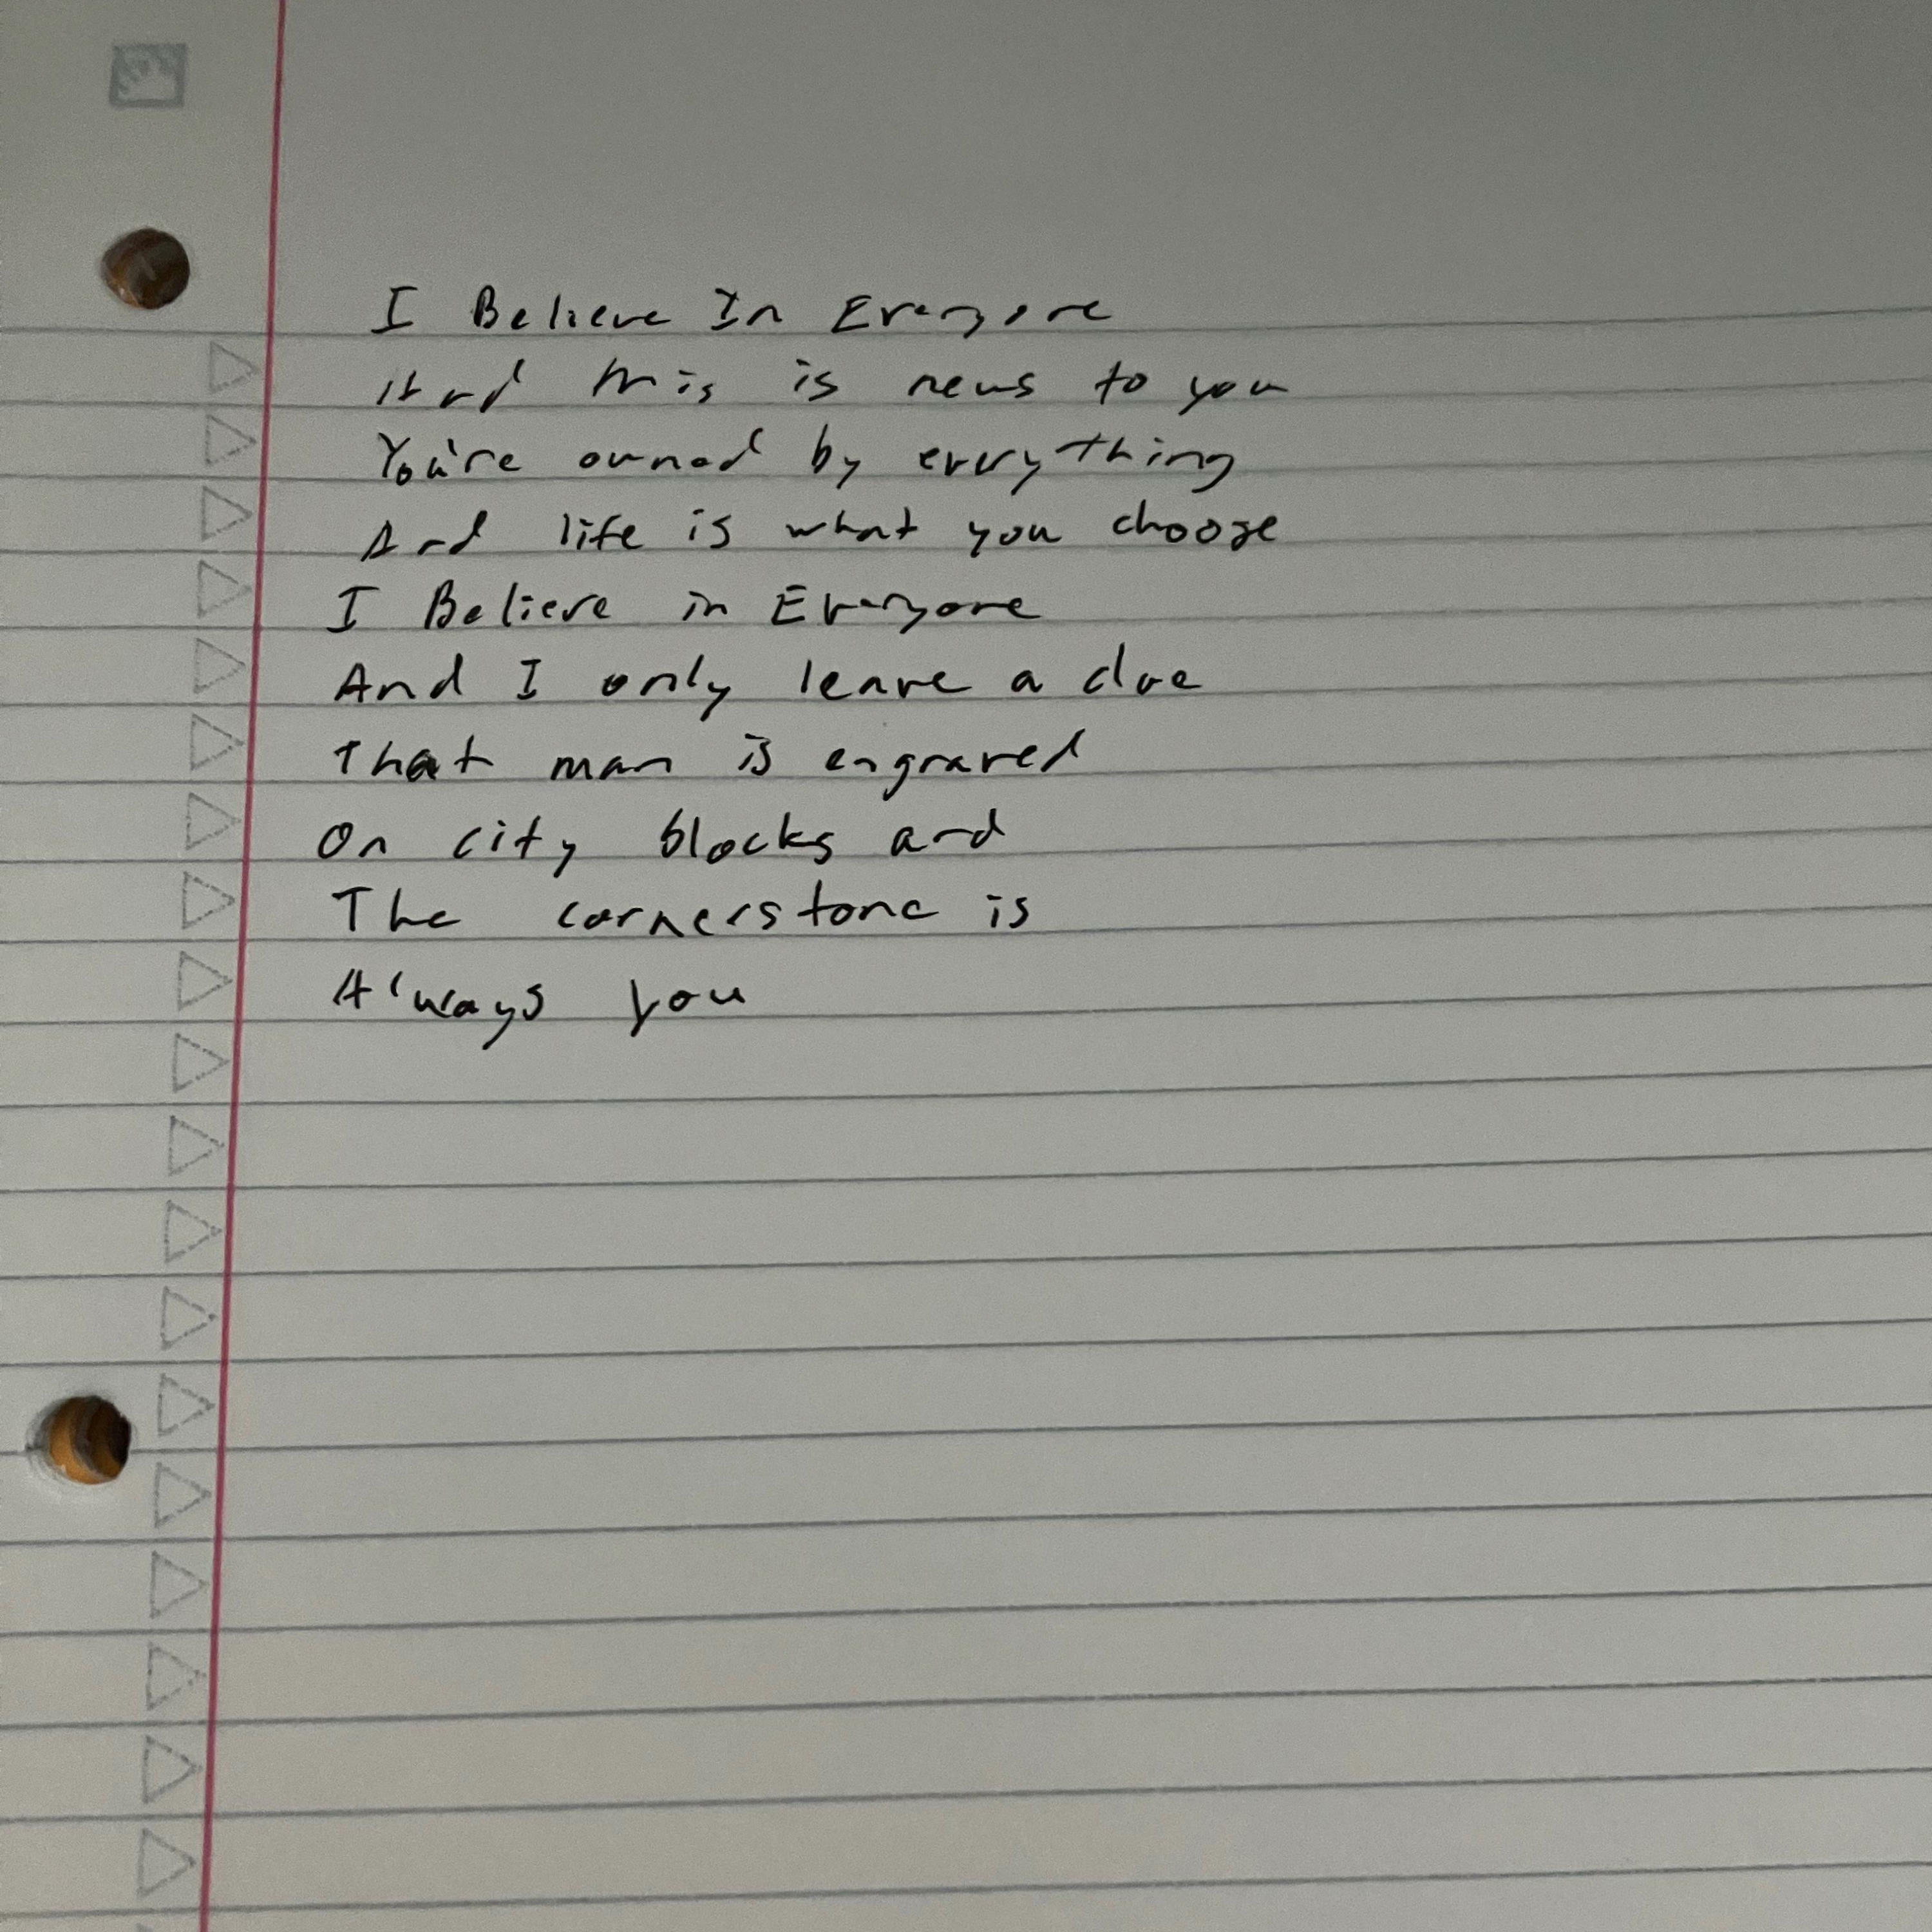 I Believe In Everyone
And this is news to you
You're owned by everything
And life is what you choose
I Believe in Everyone
And I only leave a clue
That man is engraved
On city blocks and
The cornerstone is
Always you